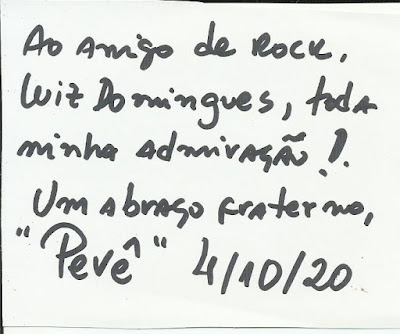 Ao amigo de Rock,
Luiz Domingues, toda
minha admiração!.
Um abraço fraterno,
"Pevê" 4/10/20